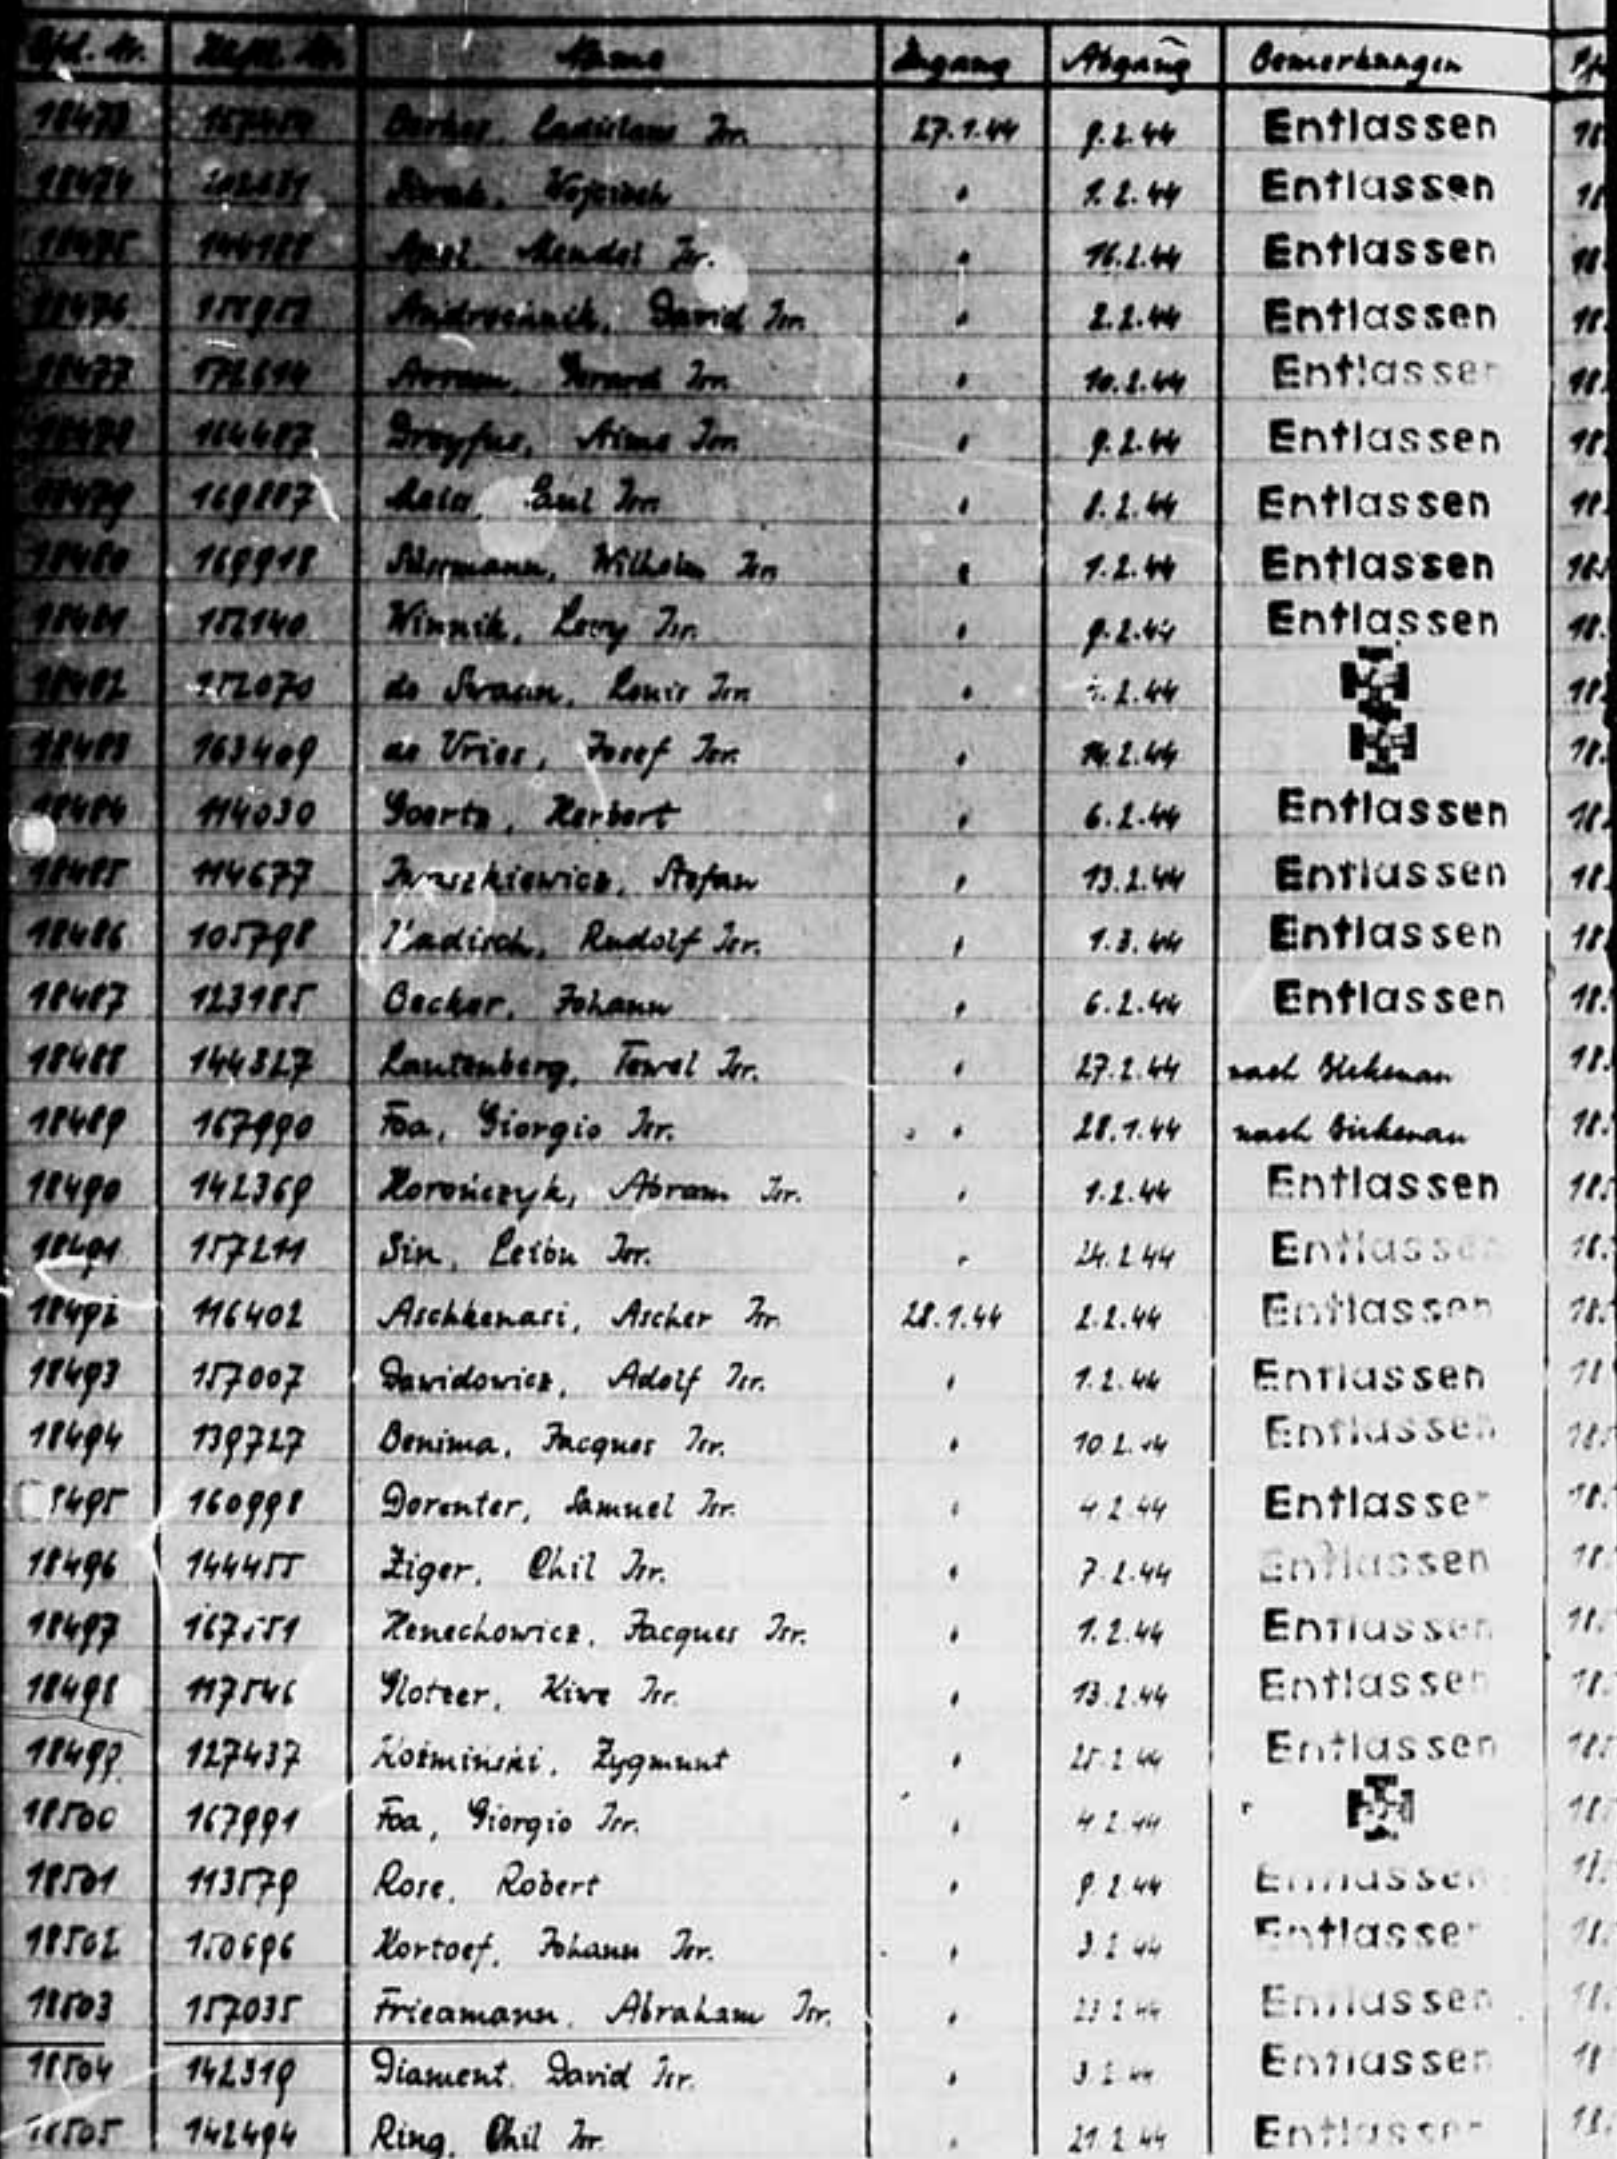 Lfd. Nr. Häftl. Nr. Name Zugang Abgang Bemerkungen
18473 Ladislaus Isr. 27.1.44 9.2.44 Entlassen
18474 Wojciech " 1.2.44 Entlassen
18475 144188 Mendel Isr. " 16.2.44 Entlassen
18476 David Isr. " 2.2.44 Entlassen
18477 172614 Isr. " 10.2.44 Entlassen
18478 164487 Dreyfus, Aimé Isr. " 9.2.44 Entlassen
18479 169887 Isr. " 8.2.44 Entlassen
18480 169918 Wilhelm Isr. " 1.2.44 Entlassen
18481 152140 Winnik, Levy Isr. " 9.2.44 Entlassen
18482 152070 de Swaan, Louis Isr. " .2.44
18483 163409 de Vries, Josef Isr. " 14.2.44
18484 114030 Goertz, Herbert " 6.2.44 Entlassen
18485 114677 Iwaszkiewicz, Stefan " 13.2.44 Entlassen
18486 105798 Rudolf Isr. " 1.3.44 Entlassen
18487 123185 Becker, Johann " 6.2.44 Entlassen
18488 144327 Lautenberg, Tewel Isr. " 27.2.44 nach Birkenau
18489 167990 Foa, Giorgio Isr. " 28.1.44 nach Birkenau
18490 142369 Horończyk, Abram Isr. " 1.2.44 Entlassen
18491 157211 Sin, Leibu Isr. " 24.2.44 Entlassen
18492 116402 Aschkenasi, Ascher Isr. 28.1.44 2.2.44 Entlassen
18493 157007 Dawidowicz, Adolf Isr. " 1.2.44 Entlassen
18494 139727 Benima, Jacques Isr. " 10.2.44 Entlassen
18495 160998 Dorenter, Samuel Isr. " 4.2.44 Entlassen
18496 144455 Ziger, Chil Isr. " 7.2.44 Entlassen
18497 167551 Henechowicz, Jacques Isr. " 1.2.44 Entlassen
18498 117546 Glotzer, Kiwe Isr. " 13.2.44 Entlassen
18499 127437 Koźmiński, Zygmunt " 25.2.44 Entlassen
18500 167991 Foa, Giorgio Isr. " 4.2.44
18501 113579 Rose, Robert " 9.2.44 Entlassen
18502 150696 Kortoef, Johann Isr. " 3.2.44 Entlassen
18503 157035 Friedmann, Abraham Isr. " 23.2.44 Entlassen
18504 142319 Diament, David Isr. " 3.2.44 Entlassen
18505 142494 Ring, Chil Isr. " 21.2.44 Entlassen